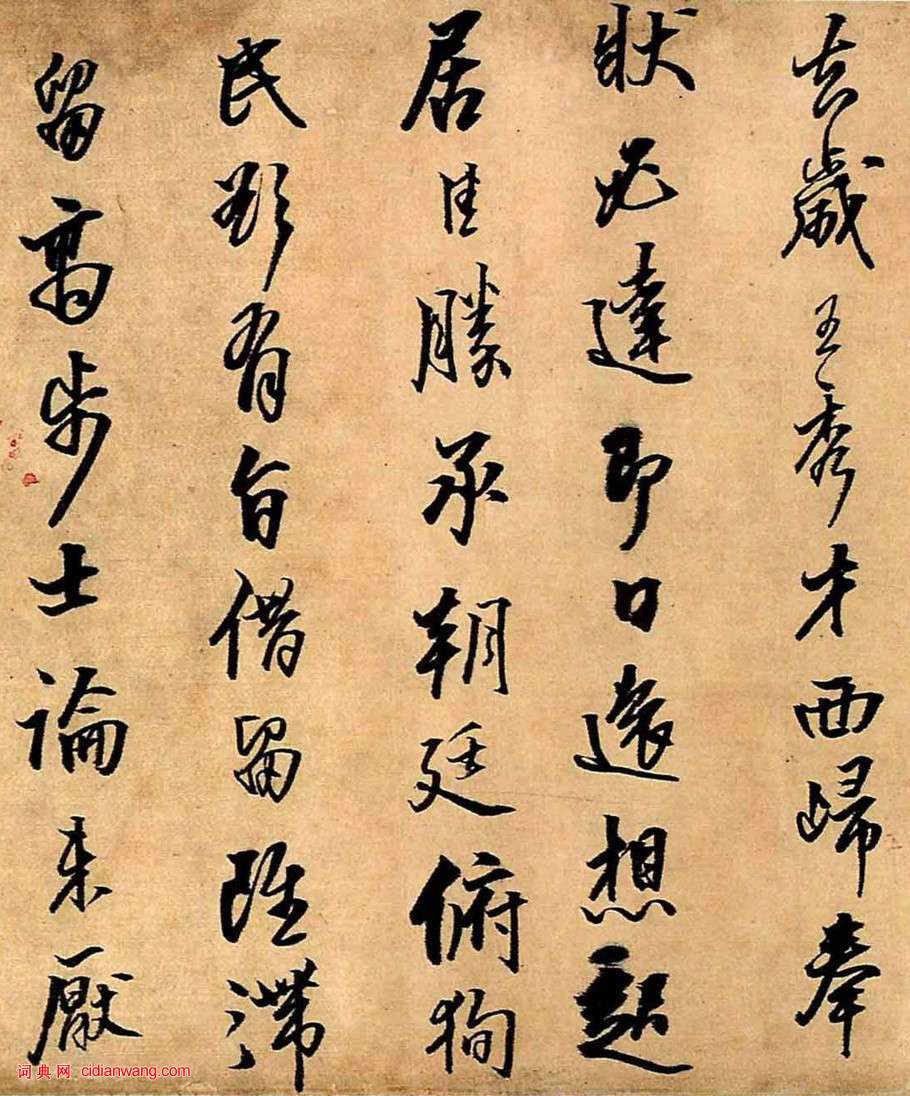 去歲王秀才西歸奉
狀必達即日遠想起
居佳勝承朝廷俯徇
民欲有旨借留雖滯
留高步士論未厭
词典网 cidianwang.com